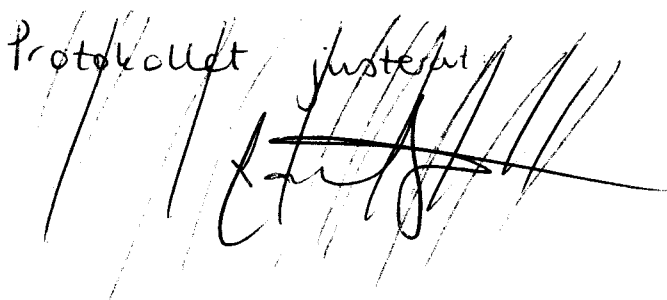 Protokollet justerat